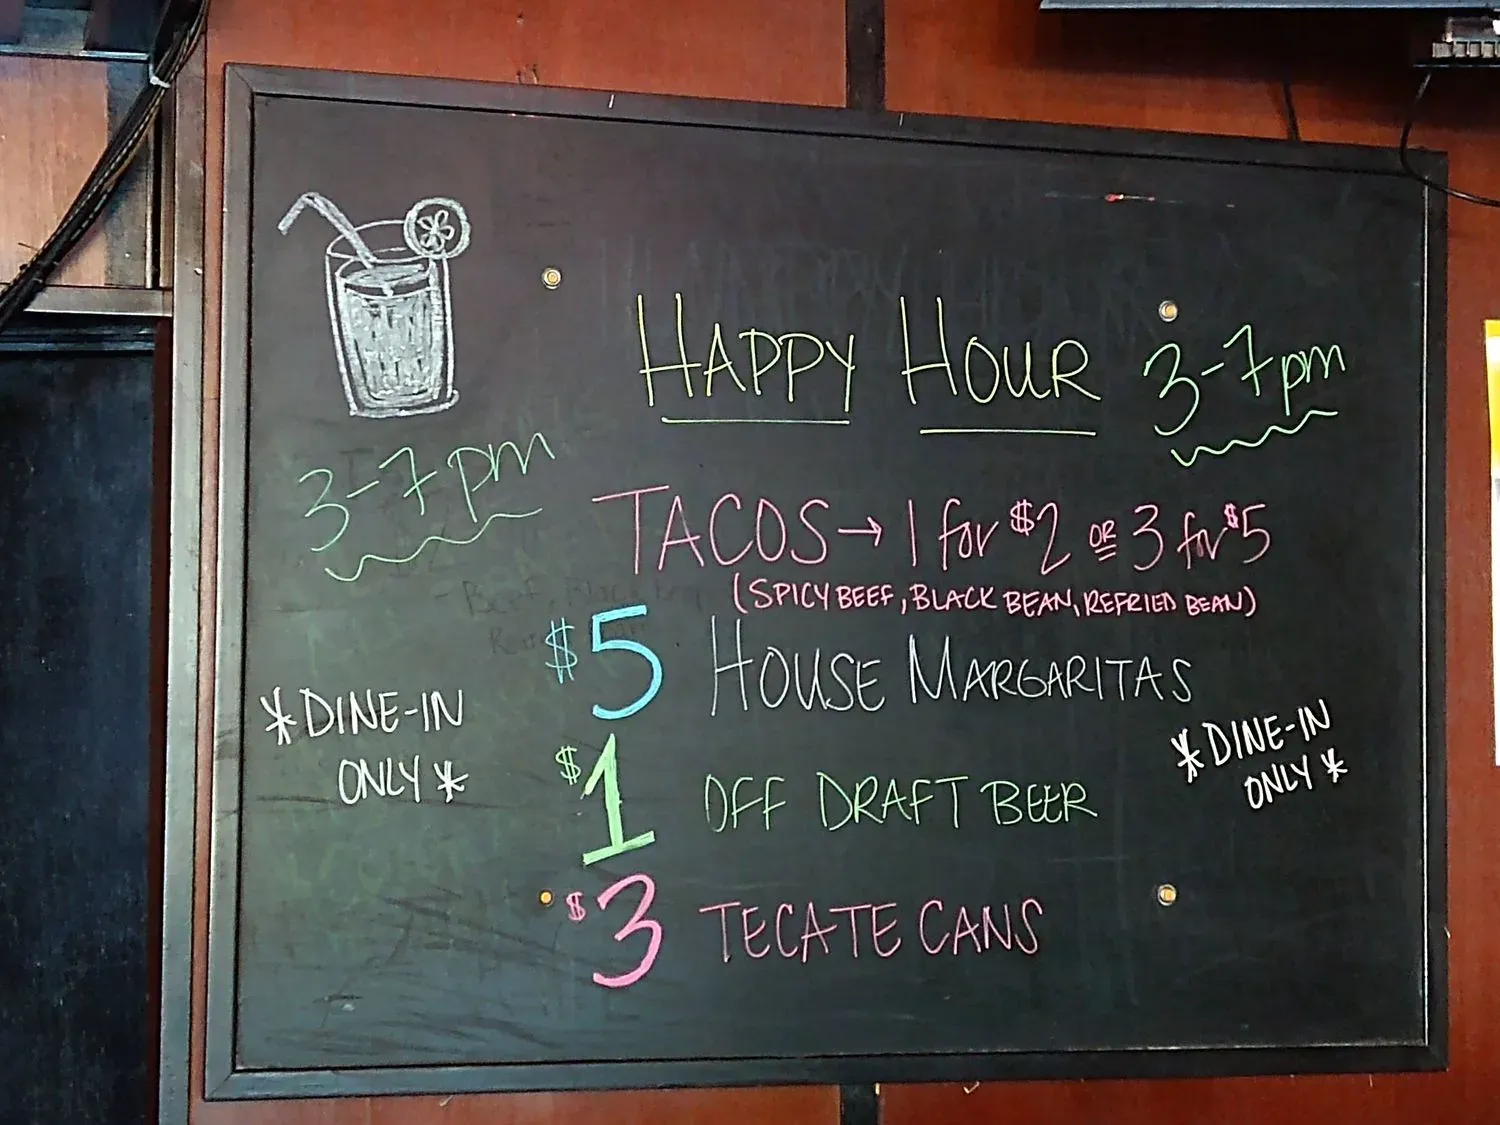 HAPPY HOUR 3-7pm
3-7pm
TACOS → 1 for $2 OR 3 for $5
(SPICY BEEF, BLACK BEAN, REFRIED BEAN)
$5 HOUSE MARGARITAS
*DINE-IN
ONLY*
*DINE-IN
ONLY*
$1 OFF DRAFT BEER
$3 TECATE CANS